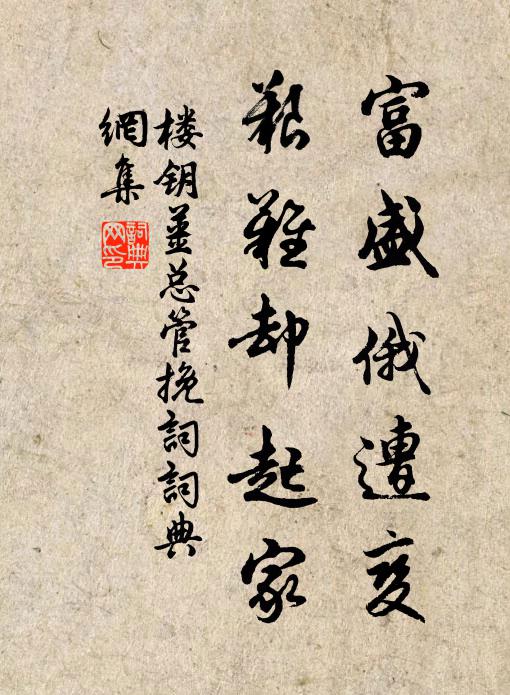 富盛俄遭变
艱難却起家
楼钥姜总管挽詞詞典
網集
詞典
网印